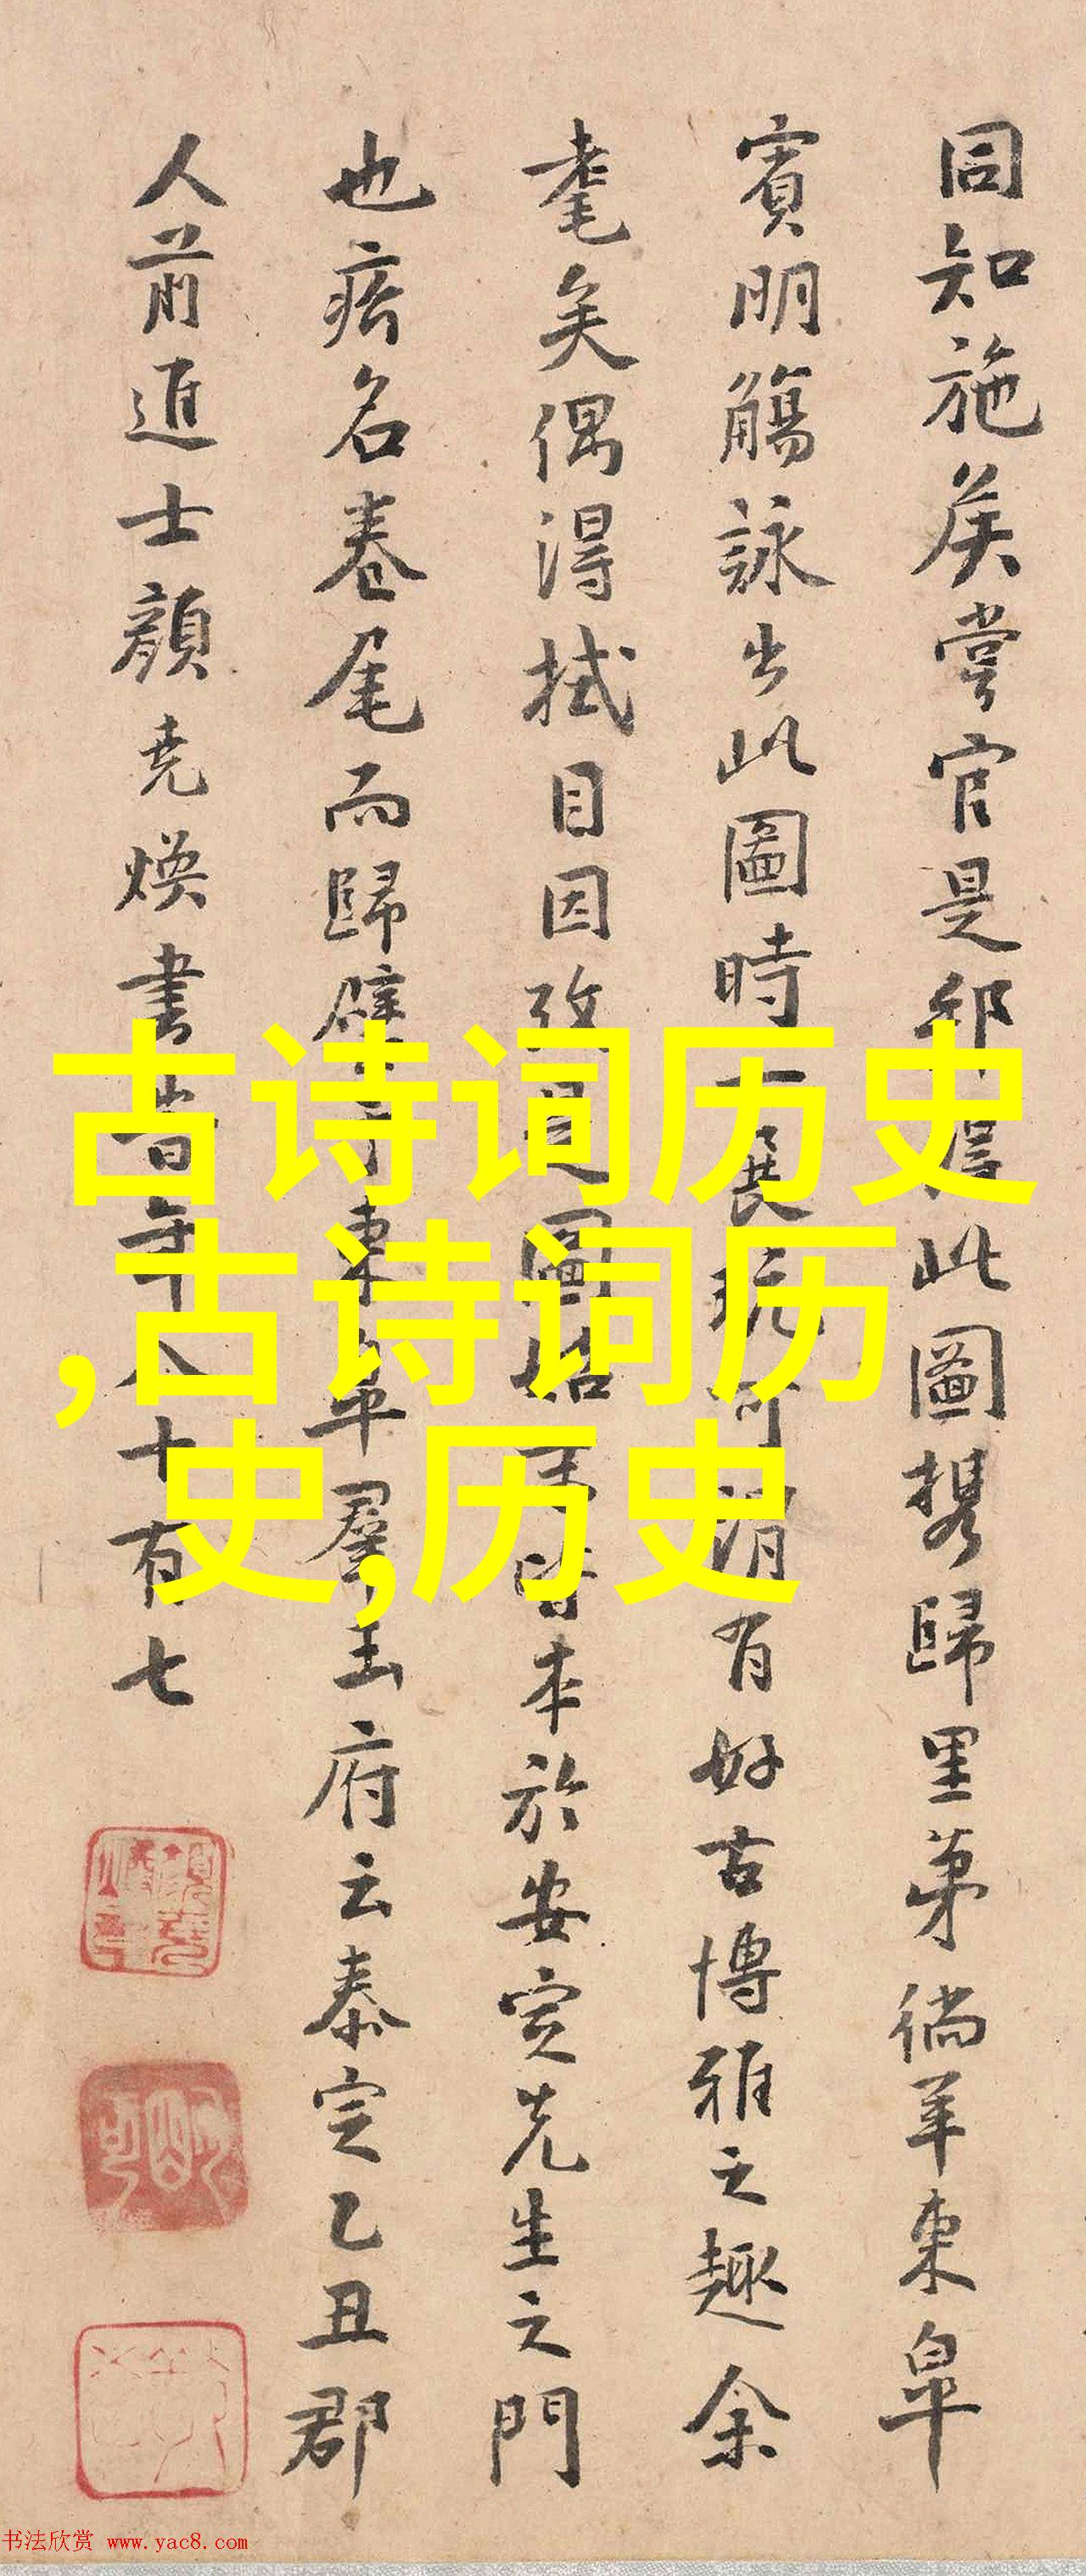 同知施侯嘗官是邦 此圖携歸里第徜羊東皐
賓明觴詠出此圖時 展玩可謂有好古博雅之趣余
耄矣偶得拭目因攷 圖 本於安定先生之門
也痦名卷尾而歸 東皐羣玉府云泰定乙丑郡
人前進士顔堯煥書 年八十有七
古诗词历史
,古诗词历
史,历史
书法欣赏 www.yac8.com